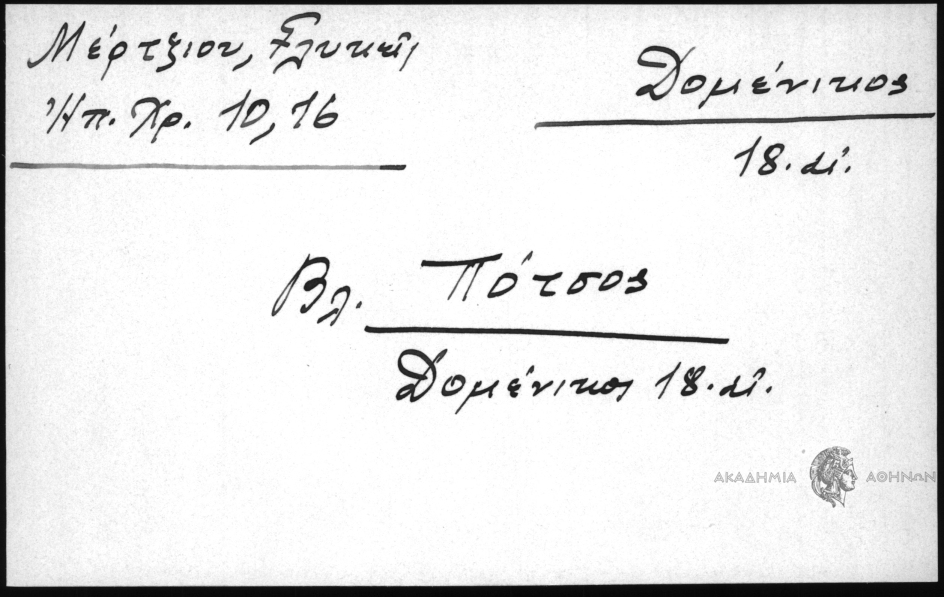 Μέρτζιου, Γλυκῆς
Ἠπ. Χρ. 10, 16
Δομένικος
18. αἰ.
Βλ. Πότσος
Δομένικος 18. αἰ.
ΑΚΑΔΗΜΙΑ ΑΘΗΝΩΝ